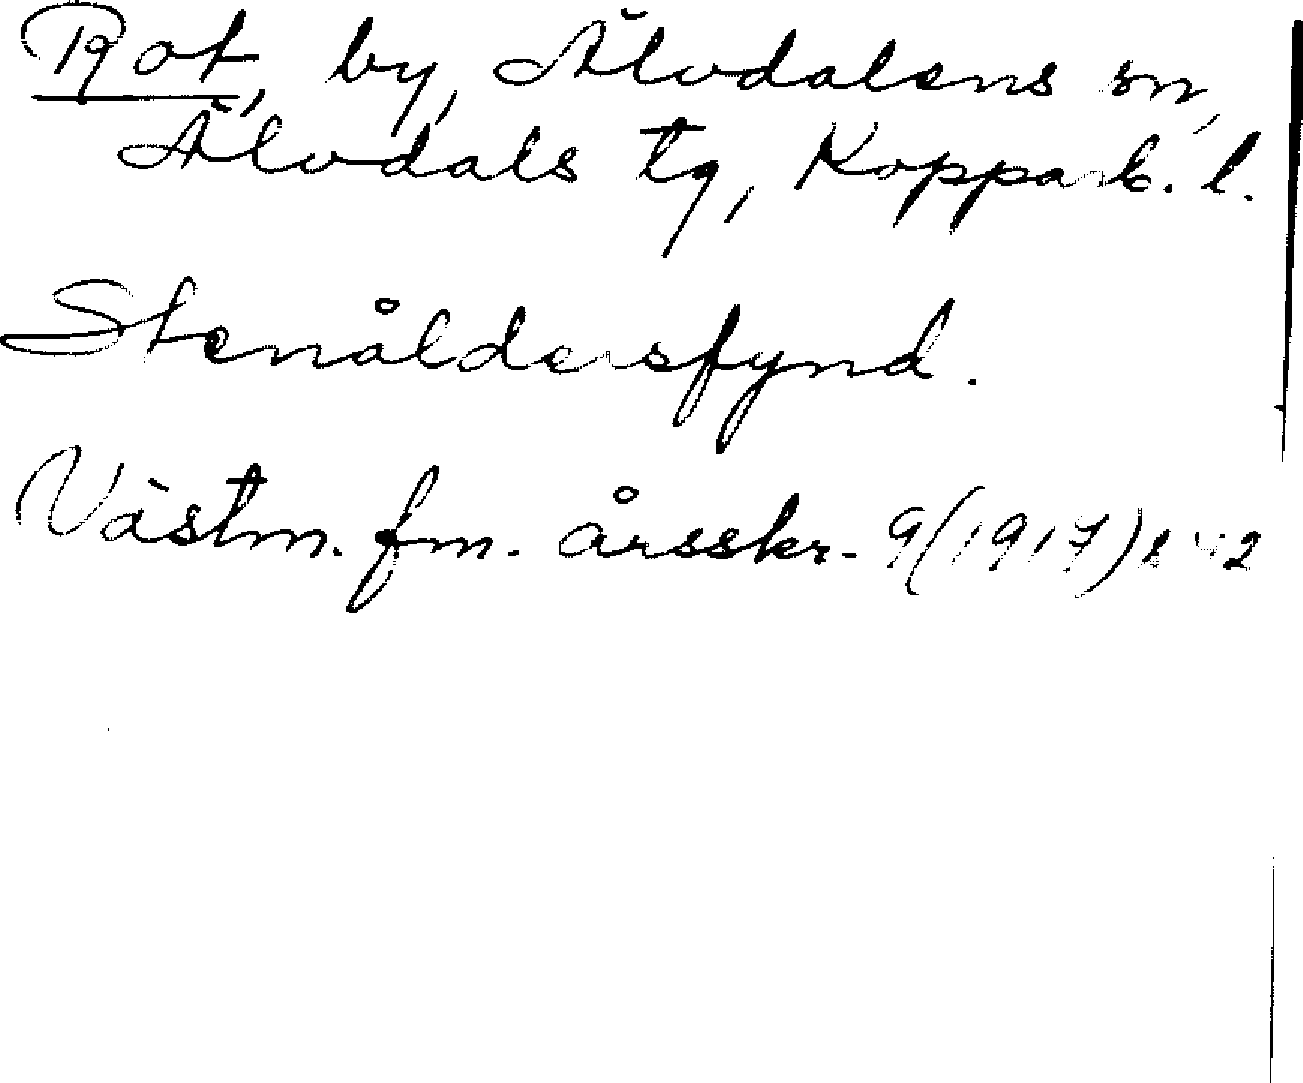 Rot, by, Älvdalens sn,
Älvdals tg, Kopparb. l.
Stenåldersfynd.
Västm. fm. årsskr. 9(1917)